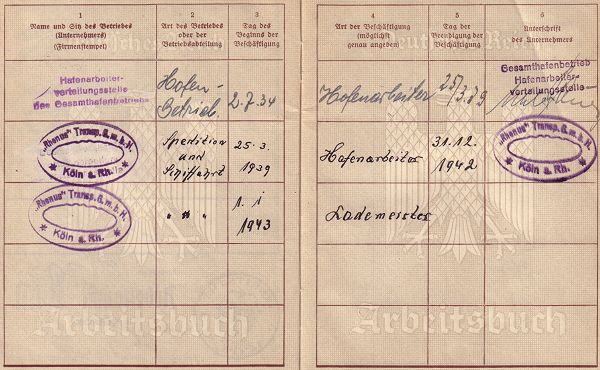 1
Name und Sitz des Betriebes
(Unternehmers)
(Firmenstempel)
2
Art des Betriebes
oder der
Betriebsabteilung
3
Tag des
Beginns der
Beschäftigung
Hafenarbeiter-
verteilungsstelle
des Gesamthafenbetriebs
Hafen-
Betrieb.
2.7.34
"Rhenus" Transp. G.m.b.H.
* Köln a. Rh. *
Spedition
und
Schiffahrt
25.3.
1939
"Rhenus" Transp. G.m.b.H.
* Köln a. Rh. *
" " "
1. 1
1943
Arbeitsbuch
4
Art der Beschäftigung
(möglichst
genau angeben)
5
Tag der
Beendigung der
Beschäftigung
6
Unterschrift
des Unternehmers
Deutsches Reich
Hafenarbeiter
25/
3.39
Gesamthafenbetrieb
Hafenarbeiter-
verteilungsstelle
Hafenarbeiter
31.12.
1942
"Rhenus" Transp. G.m.b.H.
* Köln a. Rh. *
Lademeister
Arbeitsbuch